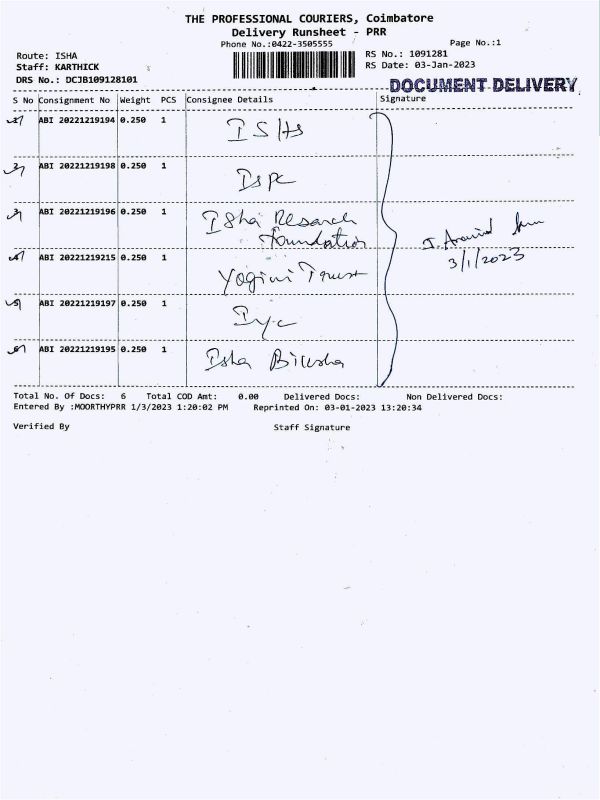 THE PROFESSIONAL COURIERS, Coimbatore
Delivery Runsheet - PRR
Phone No.:0422-3505555
Page No.:1
Route: ISHA
RS No.: 1091281
Staff: KARTHICK
RS Date: 03-Jan-2023
DRS No.: DCJB109128101
DOCUMENT DELIVERY
S No Consignment No Weight PCS Consignee Details Signature
1 ABI 20221219194 0.250 1
2 ABI 20221219198 0.250 1
3 ABI 20221219196 0.250 1 Isha Research
Foundation
4 ABI 20221219215 0.250 1 Yogini Trust
J. Aravind
3/1/2023
5 ABI 20221219197 0.250 1 Iyc
6 ABI 20221219195 0.250 1 Isha
Total No. Of Docs: 6 Total COD Amt: 0.00 Delivered Docs: Non Delivered Docs:
Entered By :MOORTHYPRR 1/3/2023 1:20:02 PM Reprinted On: 03-01-2023 13:20:34
Verified By Staff Signature